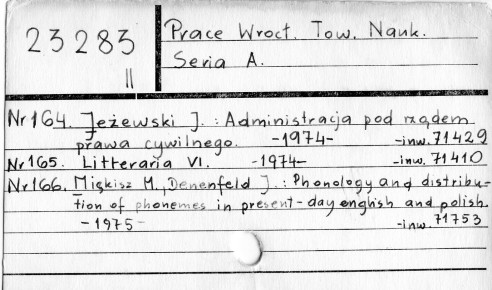 23283
II
Prace Wrocł. Tow. Nauk.
Seria A.
Nr 164. Jeżewski J. : Administracja pod rządem
prawa cywilnego. -1974- -inw. 71429
Nr 165. Litteraria VI. -1974- -inw. 71410
Nr 166. Miękisz M., Denenfeld J. : Phonology and distribu-
tion of phonemes in present-day english and polish.
-1975- -inw. 71753